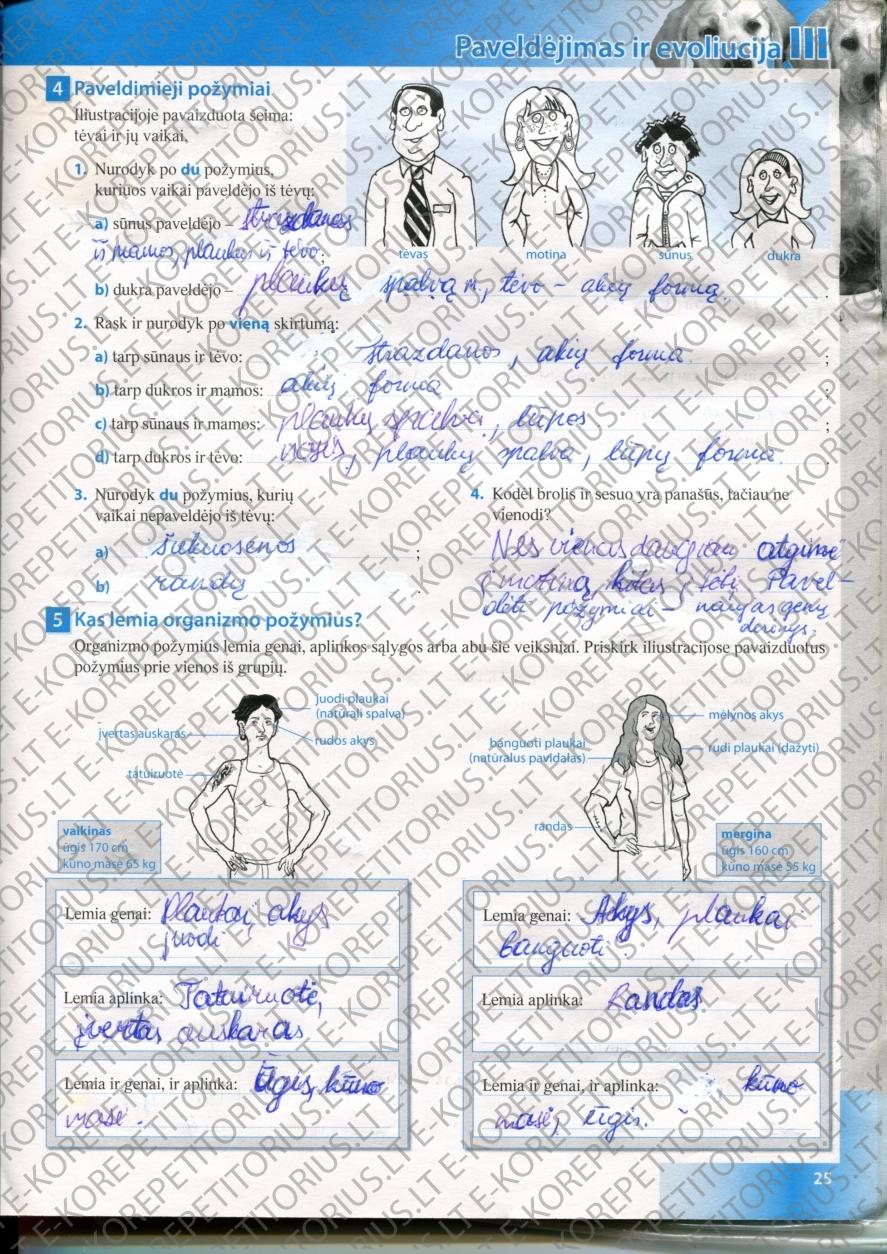 Paveldėjimas ir evoliucija III
4 Paveldimieji požymiai
Iliustracijoje pavaizduota šeima:
tėvai ir jų vaikai.
1. Nurodyk po du požymius,
kuriuos vaikai paveldėjo iš tėvų:
a) sūnus paveldėjo – strazdanas
iš mamos, plaukus iš tėvo;
tėvas
motina
sūnus
dukra
b) dukra paveldėjo – plaukų spalvą m., tėvo – akių formą.
2. Rask ir nurodyk po vieną skirtumą:
a) tarp sūnaus ir tėvo: strazdanos, akių forma ;
b) tarp dukros ir mamos: akių forma ;
c) tarp sūnaus ir mamos: plaukų spalva, lūpos ;
d) tarp dukros ir tėvo: nosis, plaukų spalva, lūpų forma.
3. Nurodyk du požymius, kurių
vaikai nepaveldėjo iš tėvų:
a) šukuosenos ;
b) randų .
4. Kodėl brolis ir sesuo yra panašūs, tačiau ne
vienodi?
Nes vienas daugiau atgimė
į motiną, kitas į tėvą. Pavel-
dėti požymiai – naujas genų
derinys.
5 Kas lemia organizmo požymius?
Organizmo požymius lemia genai, aplinkos sąlygos arba abu šie veiksniai. Priskirk iliustracijose pavaizduotus
požymius prie vienos iš grupių.
juodi plaukai
(natūrali spalva)
įvertas auskaras
rudos akys
tatuiruotė
vaikinas
ūgis 170 cm
kūno masė 65 kg
mėlynos akys
banguoti plaukai
(natūralus pavidalas)
rudi plaukai (dažyti)
randas
mergina
ūgis 160 cm
kūno masė 55 kg
Lemia genai: Plaukai, akys
juodi
Lemia aplinka: Tatuiruotė,
įvertas auskaras
Lemia ir genai, ir aplinka: Ūgis, kūno
masė.
Lemia genai: Akys, plaukai
banguoti.
Lemia aplinka: Randas
Lemia ir genai, ir aplinka: kūno
masė, ūgis.
25
E-KOREPETITORIUS.LT